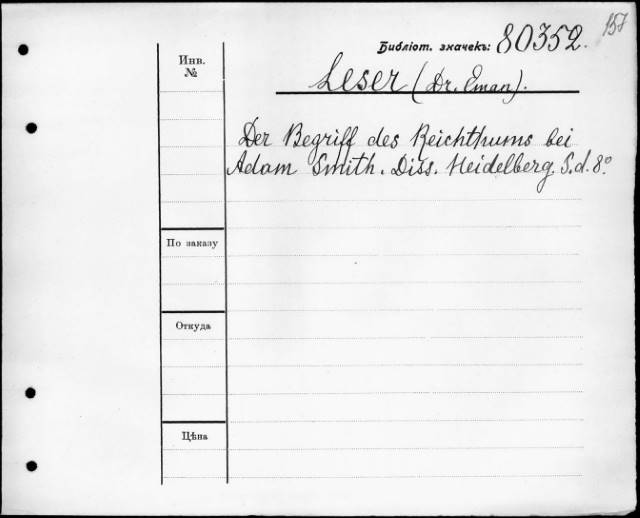 157
Библіот. значекъ: 80352.
Инв. №
Leser (Dr. Eman).
Der Begriff des Reichthums bei
Adam Smith. Diss. Heidelberg. S.d. 8º
По заказу
Откуда
Цѣна